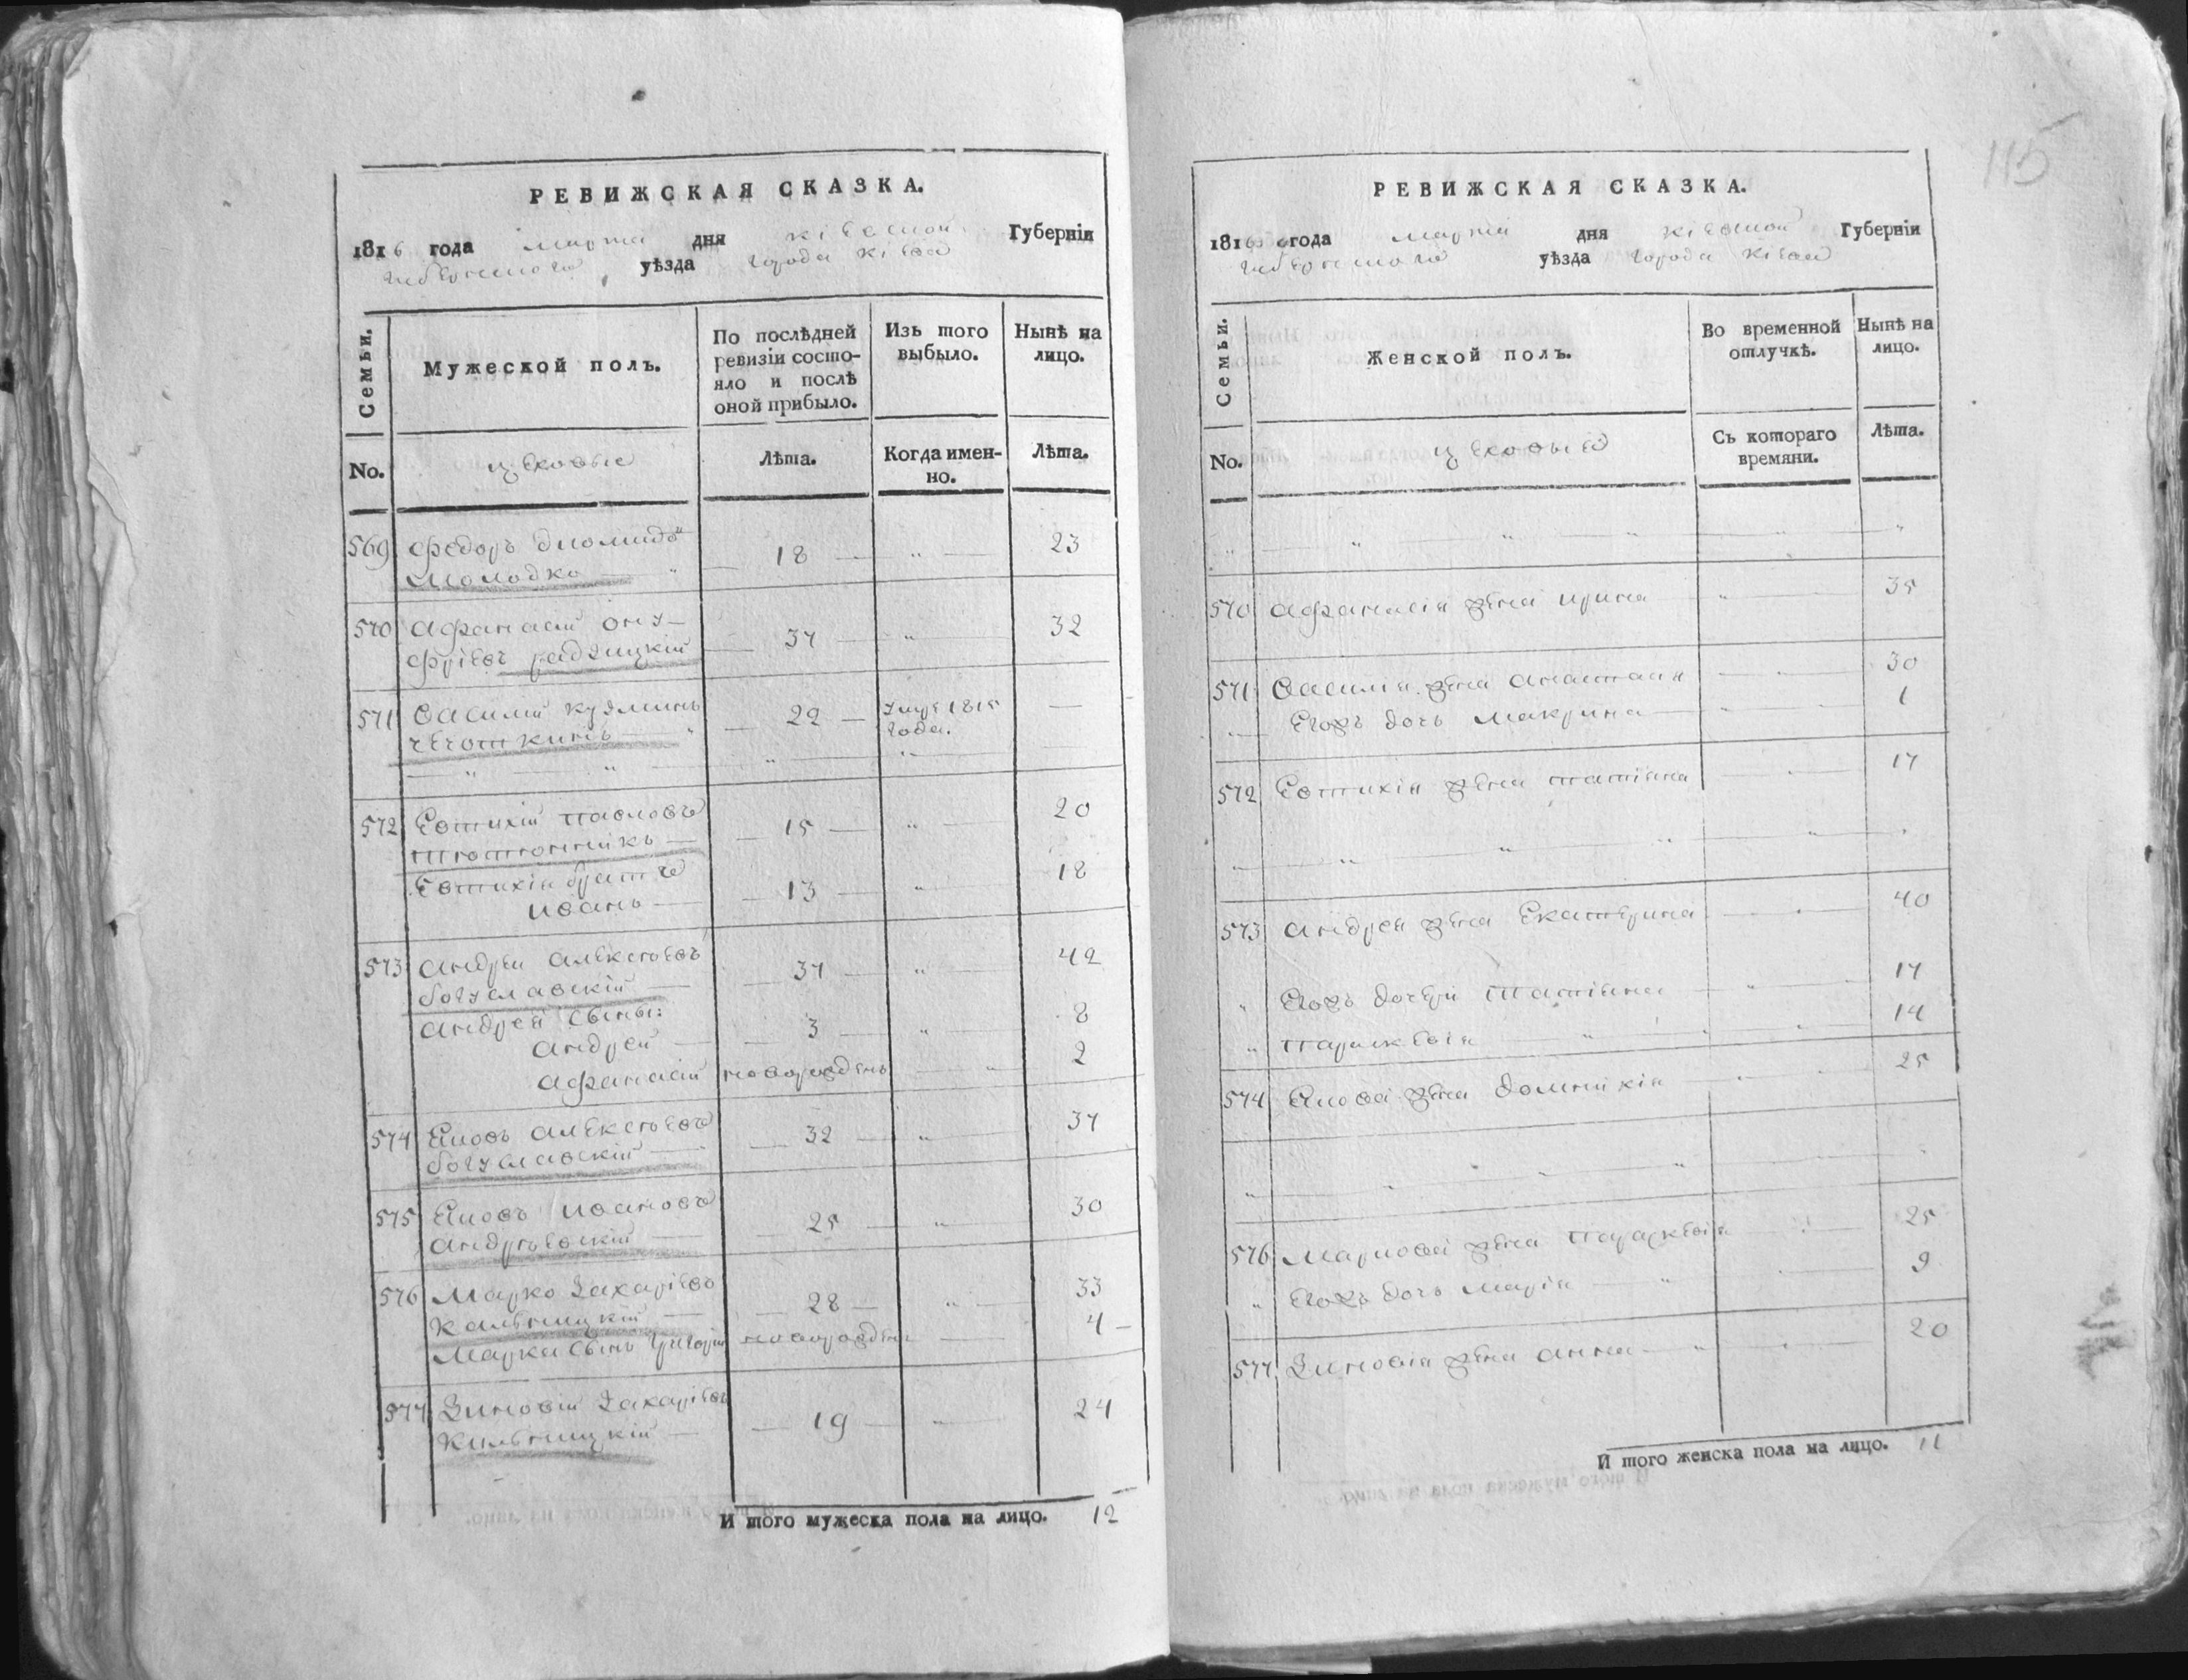 РЕВИЖСКАЯ СКАЗКА.
1816 года марта дня кіевской Губерніи
уѣзда города кіева
Семьи. Мужеской полъ. По послѣдней ревизіи состо- Изъ того Нынѣ на
яло и послѣ оной прибыло. выбыло. лицо.
No. цеховые Лѣта. Когда имен- Лѣта.
но.
569 Федоръ диомидо" 18 — " — 23
Молодко — "
570 афанасій ону- 37 — " — 32
фріевъ радзицкій
571 василій кузминъ — 22 — умре 1815 —
чечоткинъ — " года.
572 Евтихій павловъ — 15 — " — 20
тютюнникъ —
Евтихія братъ — 13 — " — 18
иванъ —
573 андрей алексѣевъ — 37 — " — 42
богуславскій —
андрея сыны:
андрей — 3 — " — 8
афанасій новорожденъ — " 2
574 Яковъ алексѣевъ — 32 — " — 37
богуславскій —
575 Яковъ ивановъ 25 — " — 30
андріевскій —
576 Марко Захаріевъ — 28 — " — 33
кальницкій —
Марка сынъ григорій новорожденъ — 4 —
577 Зиновій Захаріевъ — 19 — " — 24
кильницкій —
И того мужеска пола на лицо. 12
115
РЕВИЖСКАЯ СКАЗКА.
1816 года марта дня кіевской Губерніи
уѣзда города кіева
Семьи. Женской полъ. Во временной Нынѣ на
отлучкѣ. лицо.
No. цеховые Съ котораго Лѣта.
времяни.
" — " — " — " — " — "
570 афанасія жена ирина " — 35
571 василія жена анастасія " — 30
" — Егожъ дочь макрина — " — 1
572 Евтихія жена татіяна " — 17
" — " — " — " — "
573 андрея жена Екатерина " — 40
" Егожъ дочери татіяна — " — 17
" параскевія " — " 14
574 Якова жена домникія " — 25
" — " — " — " — "
576 Маркова жена параскевія " — 25
" Егожъ дочь марія — " — 9
577 Зиновія жена анна — " — 20
И того женска пола на лицо. 11